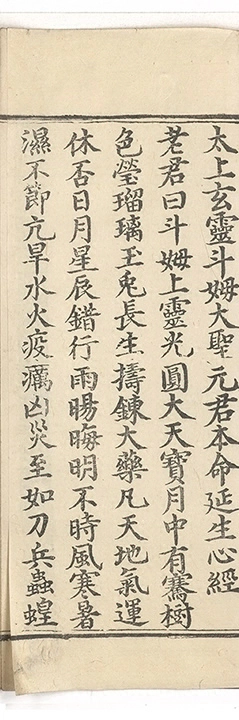 太上玄靈斗姆大聖元君本命延生心經
老君曰斗姆上靈光圓大天寶月中有騫樹
色瑩瑠璃玉兎長生擣鍊大藥凡天地氣運
休否日月星辰錯行雨暘晦明不時風寒暑
濕不節亢旱水火疫癘凶災至如刀兵蟲蝗